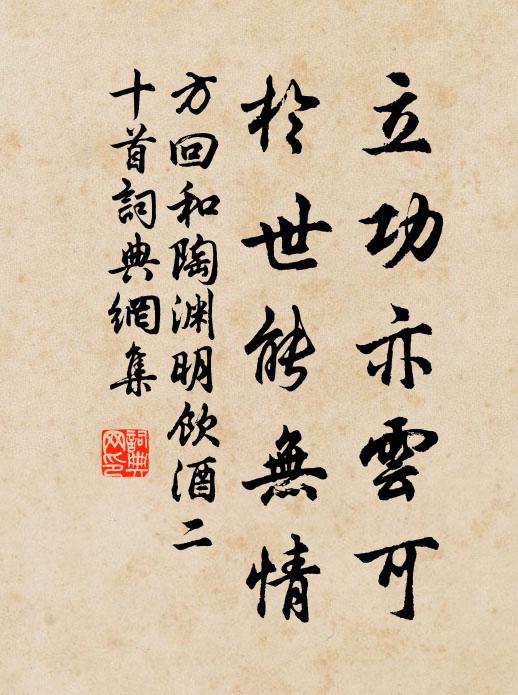 立功亦雲可
於世能無情
方回和陶渊明飲酒二
十首詞典網集
詞典
网印